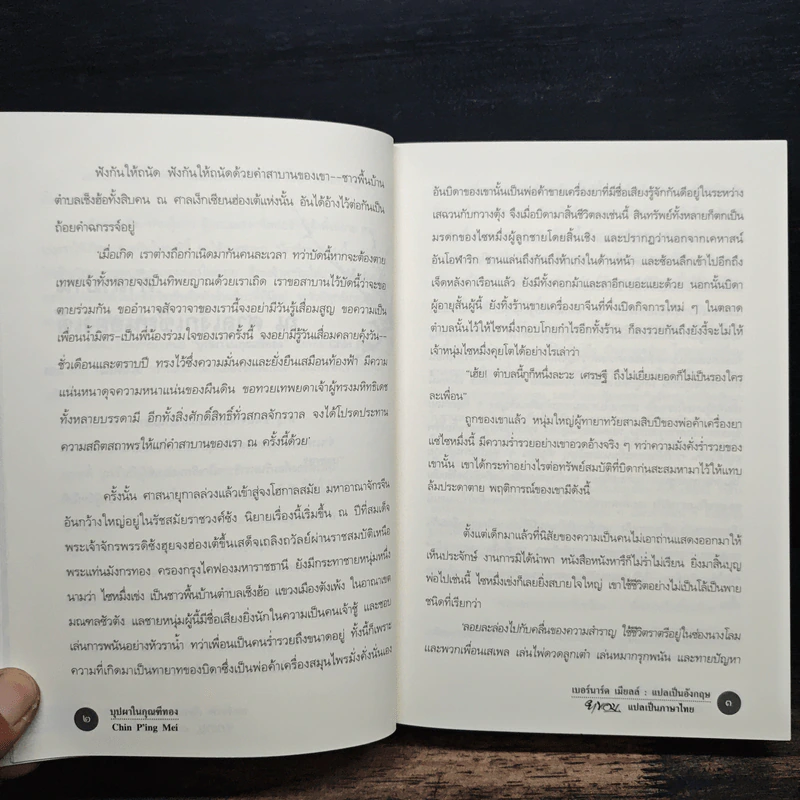 ฟังกันให้ถนัด ฟังกันให้ถนัดด้วยคำสาบานของเขา--ชาวพื้นบ้าน
ตำบลเช็งฮ้อทั้งสิบคน ณ ศาลเง็กเซียนฮ่องเต้แห่งนั้น อันได้อ้างไว้ต่อกันเป็น
ถ้อยคำฉกรรจ์อยู่
'เมื่อเกิด เราต่างถือกำเนิดมากันคนละเวลา ทว่าบัดนี้หากจะต้องตาย
เทพยเจ้าทั้งหลายจงเป็นทิพยญาณด้วยเราเถิด เราขอสาบานไว้บัดนี้ว่าจะขอ
ตายร่วมกัน ขออำนาจสัจวาจาของเรานี้จงอย่ามีวันรู้เสื่อมสูญ ขอความเป็น
เพื่อนน้ำมิตร-เป็นพี่น้องร่วมใจของเราครั้งนี้ จงอย่ามีรู้วันเสื่อมคลายคุ้งวัน--
ชั่วเดือนและตราบปี ทรงไว้ซึ่งความมั่นคงและยั่งยืนเสมือนท้องฟ้า มีความ
แน่นหนาดุจความหนาแน่นของผืนดิน ขอทวยเทพยดาเจ้าผู้ทรงมหิทธิเดช
ทั้งหลายบรรดามี อีกทั้งสิ่งศักดิ์สิทธิ์ทั่วสกลจักรวาล จงได้โปรดประทาน
ความสถิตสถาพรให้แก่คำสาบานของเรา ณ ครั้งนี้ด้วย'
ครั้งนั้น ศาสนายุกาลล่วงแล้วเข้าสู่จงโฮกาลสมัย มหาอาณาจักรจีน
อันกว้างใหญ่อยู่ในรัชสมัยราชวงศ์ซ้ง นิยายเรื่องนี้เริ่มขึ้น ณ ปีที่สมเด็จ
พระเจ้าจักรพรรดิซ้งฮุยจงฮ่องเต้ขึ้นเสด็จเถลิงถวัลย์ผ่านราชสมบัติเหนือ
พระแท่นมังกรทอง ครองกรุงไคฟองมหาราชธานี ยังมีกระทาชายหนุ่มหนึ่ง
นามว่า ไซหมึ่งเช่ง เป็นชาวพื้นบ้านตำบลเช็งฮ้อ แขวงเมืองตังเพ้ง ในอาณาเขต
มณฑลซัวตัง แลชายหนุ่มผู้นี้มีชื่อเสียงยิ่งนักในความเป็นคนเจ้าชู้ และชอบ
เล่นการพนันอย่างหัวราน้ำ ทว่าเพื่อเป็นคนร่ำรวยถึงขนาดอยู่ ทั้งนี้ก็เพราะ
ความที่เกิดมาเป็นทายาทของบิดาซึ่งเป็นพ่อค้าเครื่องสมุนไพรมั่งคั่งนั่นเอง
๒
บุปผาในกุณฑีทอง
Chin P'ing Mei
อันบิดาของเขานั้นเป็นพ่อค้าขายเครื่องยาที่มีชื่อเสียงรู้จักกันดีอยู่ในระหว่าง
เสฉวนกับกวางตุ้ง จึงเมื่อบิดามาสิ้นชีวิตลงเช่นนี้ สินทรัพย์ทั้งหลายก็ตกเป็น
มรดกของไซหมึ่งผู้ลูกชายโดยสิ้นเชิง และปรากฏว่านอกจากเคหาสน์
อันโอฬาริก ชานแล่นถึงกันถึงห้าเก๋งในด้านหน้า และซ้อนลึกเข้าไปอีกถึง
เจ็ดหลังคาเรือนแล้ว ยังมีทั้งคอกม้าและลาอีกเยอะแยะด้วย นอกนั้นบิดา
ผู้อายุสั้นผู้นี้ ยังทิ้งร้านขายเครื่องยาจีนที่พึ่งเปิดกิจการใหม่ ๆ ในตลาด
ตำบลนั้นไว้ให้ไซหมึ่งกอบโกยกำไรอีกทั้งร้าน ก็ลงรวยกันถึงยังงี้จะไม่ให้
เจ้าหนุ่มไซหมึ่งคุยโตได้อย่างไรเล่าว่า
"เฮ้ย! ตำบลนี้กูก็หนึ่งละวะ เศรษฐี ถึงไม่เยี่ยมยอดก็ไม่เป็นรองใคร
ละเพื่อน"
ถูกของเขาแล้ว หนุ่มใหญ่ผู้ทายาทวัยสามสิบปีของพ่อค้าเครื่องยา
แซ่ไซหมึ่งนี้ มีความร่ำรวยอย่างเขาอวดอ้างจริง ๆ ทว่าความมั่งคั่งร่ำรวยของ
เขานั้น เขาได้กระทำอย่างไรต่อทรัพย์สมบัติที่บิดาก่นสะสมหามาไว้ให้แทบ
ล้มประดาตาย พฤติการณ์ของเขามีดังนี้
ตั้งแต่เด็กมาแล้วที่นิสัยของความเป็นคนไม่เอาถ่านแสดงออกมาให้
เห็นประจักษ์ งานการมิได้นำพา หนังสือหนังหารึก็ไม่ร่ำไม่เรียน ยิ่งมาสิ้นบุญ
พ่อไปเช่นนี้ ไซหมึ่งเช่งก็เลยยิ่งสบายใจใหญ่ เขาใช้ชีวิตอย่างไม่เป็นโล้เป็นพาย
ชนิดที่เรียกว่า
'ลอยละล่องไปกับคลื่นของความสำราญ ใช้ชีวิตราตรีอยู่ในซ่องนางโลม
และพวกเพื่อนเสเพล เล่นไพ่ดวดลูกเต๋า เล่นหมากรุกพนัน และทายปัญหา
เบอร์นาร์ด เมียลล์ : แปลเป็นอังกฤษ
แปลเป็นภาษาไทย
๓